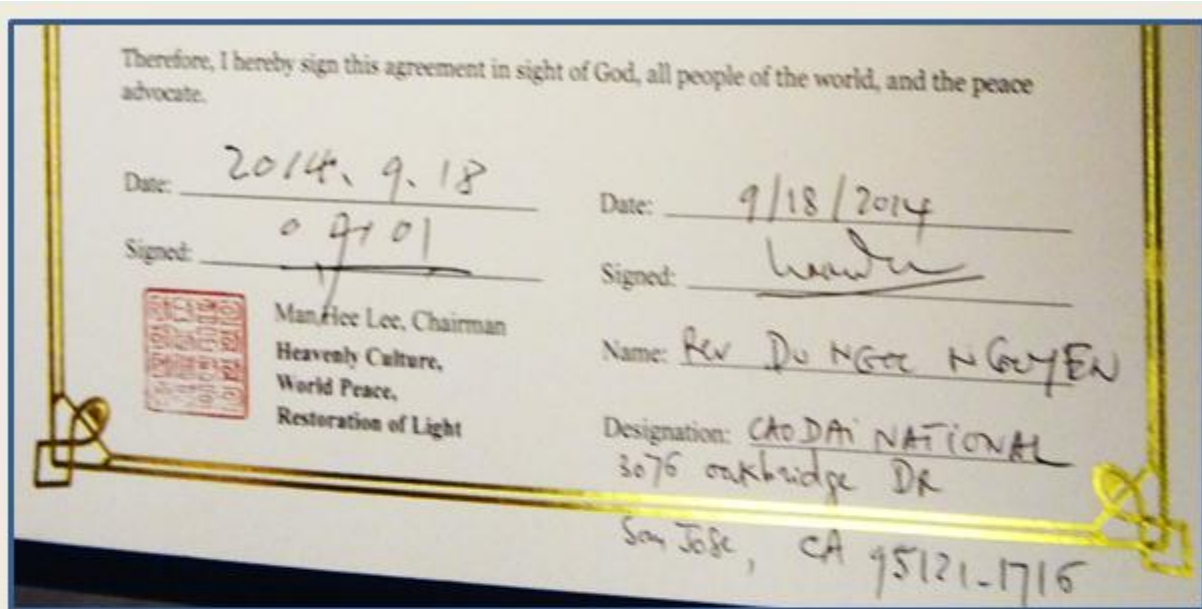 Therefore, I hereby sign this agreement in sight of God, all people of the world, and the peace
advocate.
Date: 2014. 9. 18
Signed:
Man Hee Lee, Chairman
Heavenly Culture,
World Peace,
Restoration of Light
Date: 9/18/2014
Signed:
Name: Rev DU NGOC NGUYEN
Designation: CAODAI NATIONAL
3076 oakbridge DR
San Jose, CA 95121-1716